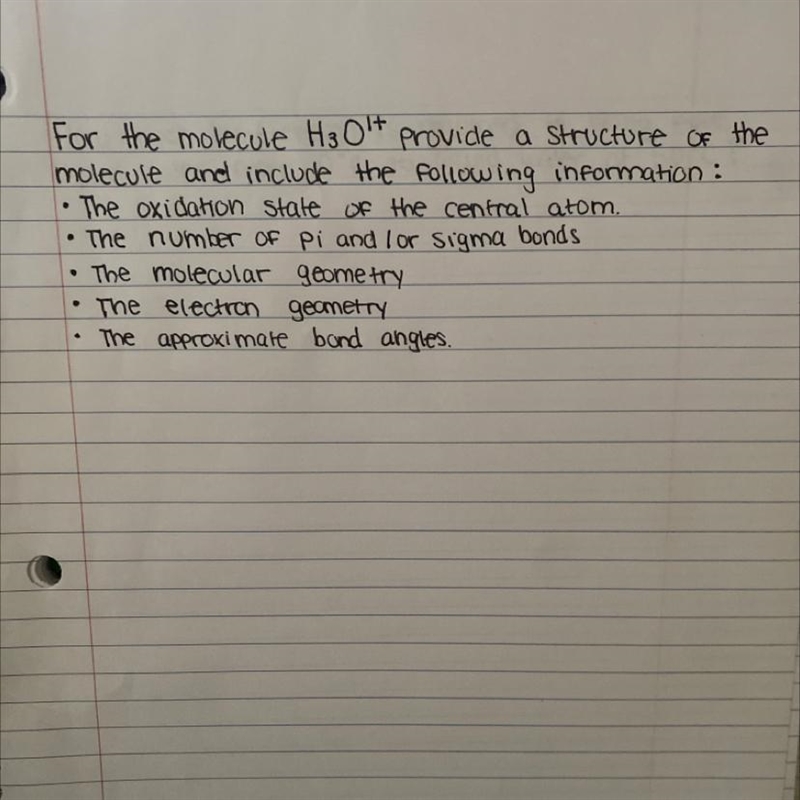 For the molecule H₃O¹⁺ provide a structure of the
molecule and include the following information:
• The oxidation state of the central atom.
• The number of pi and/or sigma bonds
• The molecular geometry
• The electron geometry
• The approximate bond angles.